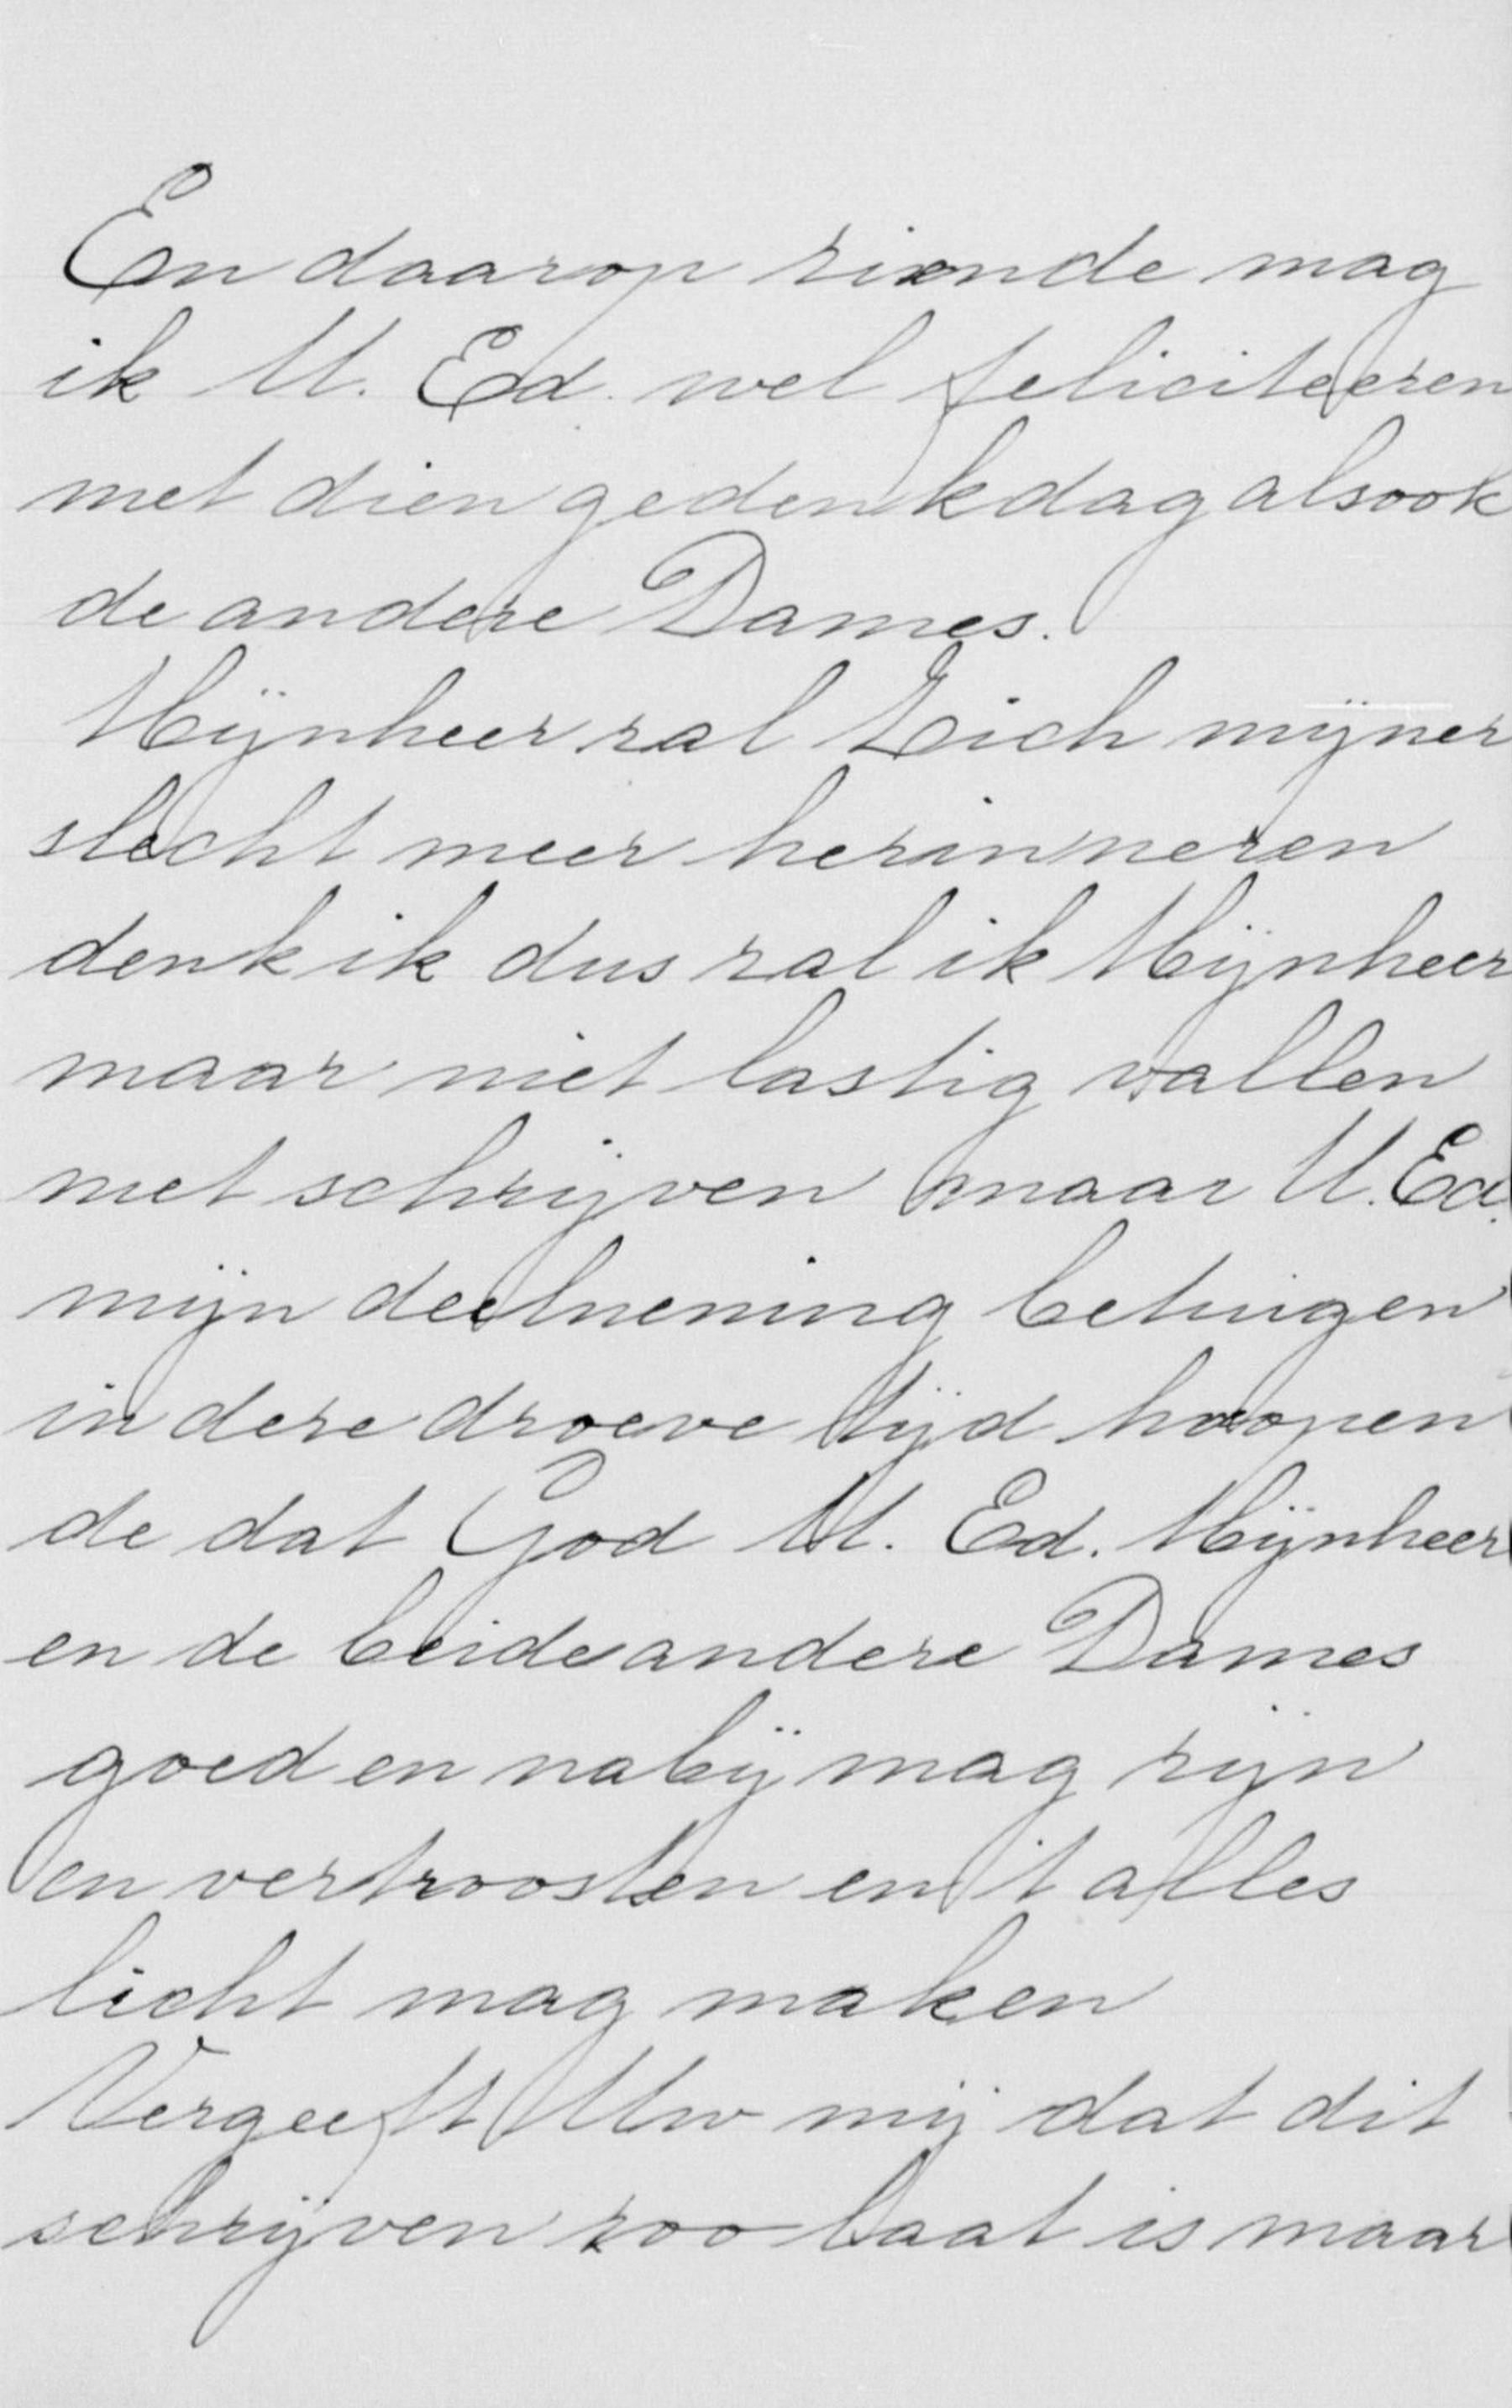 En daarop ziende mag
ik U. Ed. wel feliciteeren
met dien gedenkdag alsook
de andere Dames.
Mijnheer zal Zich mijner
slecht meer herinneren
denk ik dus zal ik Mijnheer
maar niet lastig vallen
met schrijven maar U. Ed.
mijn deelnening betuigen
in deze droeve tijd hoopen
de dat God U. Ed. Mijnheer
en de beide andere Dames
goed en nabij mag zijn
en vertroosten en 't alles
licht mag maken
Vergeeft Uw mij dat dit
schrijven zoo laat is maar